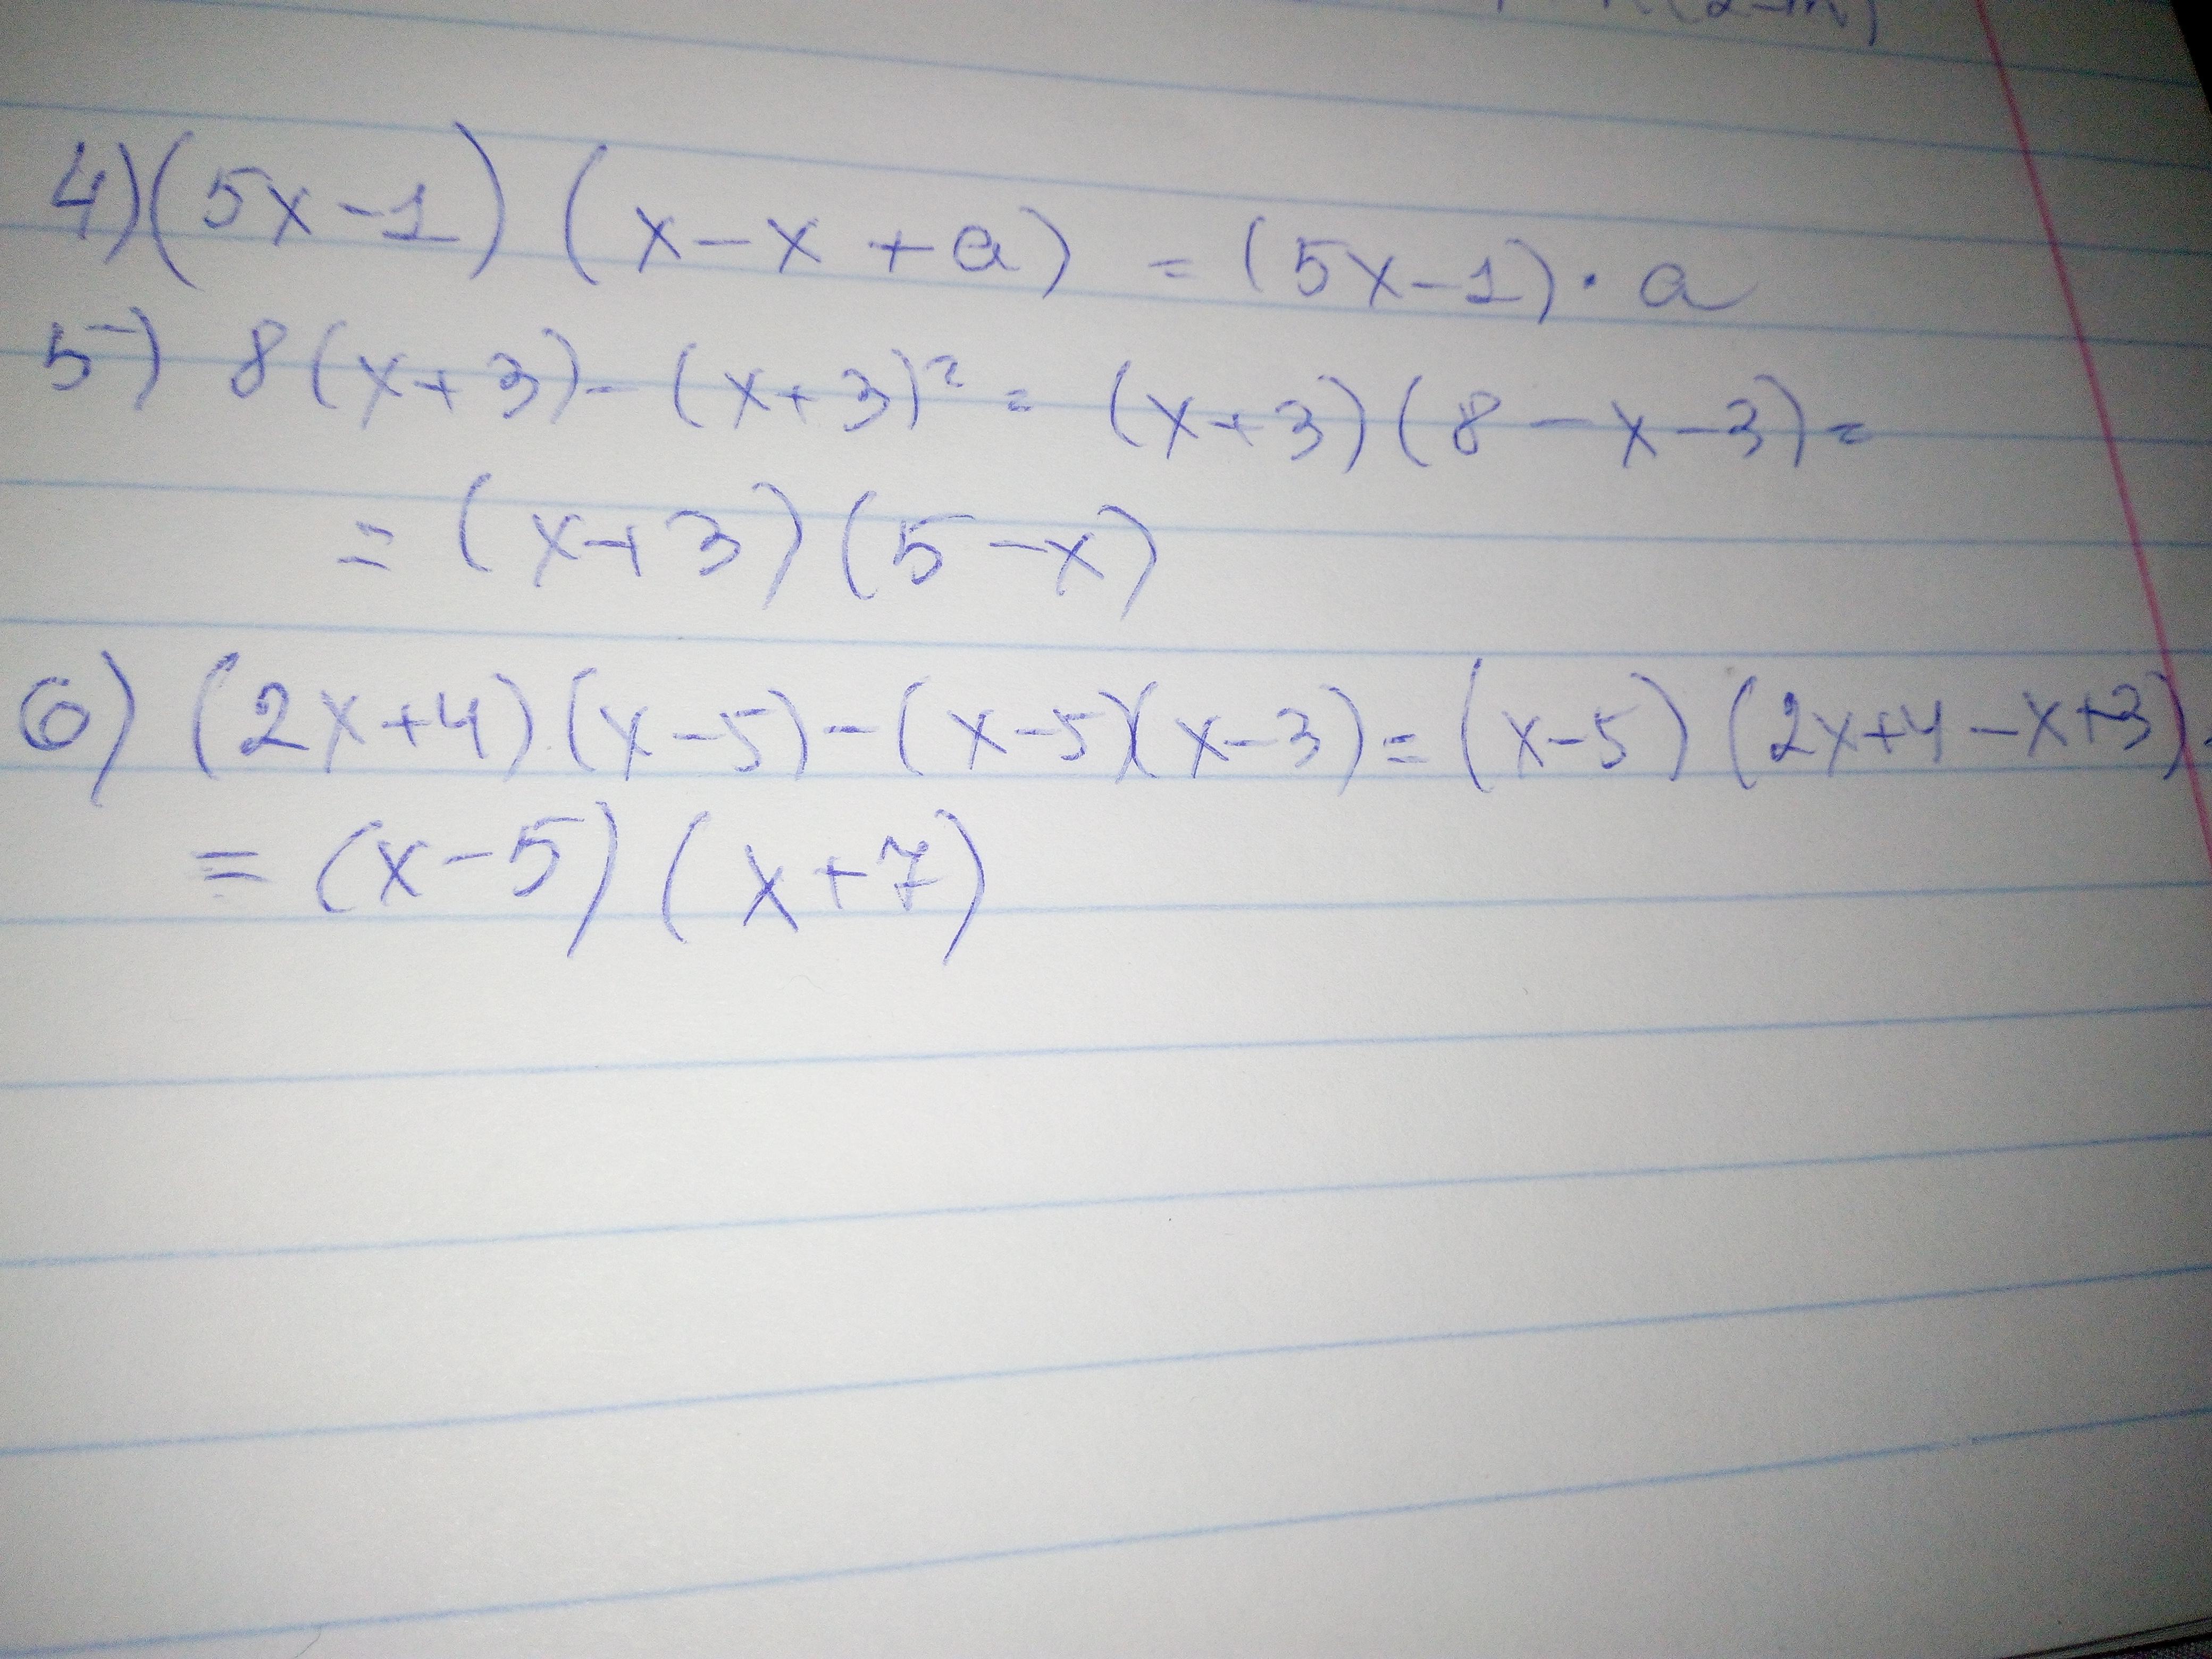 (2-m)
4) (5x-1) (x-x+a) = (5x-1)·a
5) 8(x+3)-(x+3)² = (x+3)(8-x-3) =
= (x+3)(5-x)
6) (2x+4)(x-5)-(x-5)(x-3) = (x-5)(2x+4-x+3)
= (x-5)(x+7)